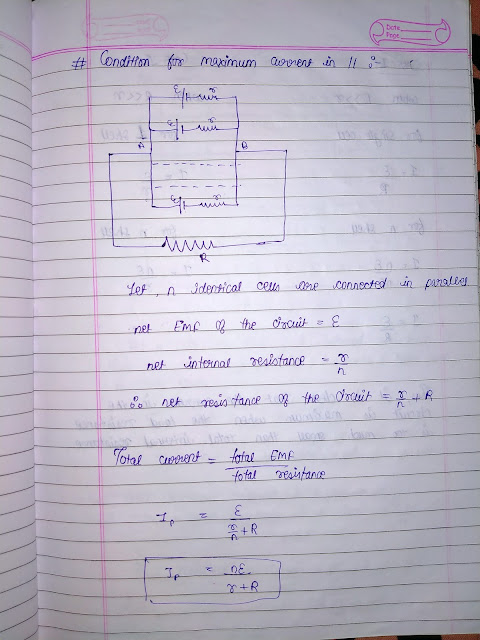 Date
Page
# Condition for maximum current in || :-
ε r
ε r
A B
ε r
R
Let, n identical cells are connected in parallel
net Emf of the circuit = ε
net internal resistance = r/n
∴ net resistance of the circuit = r/n + R
Total current = total EMF / total resistance
I_p = ε / (r/n + R)
I_p = nε / (r + R)